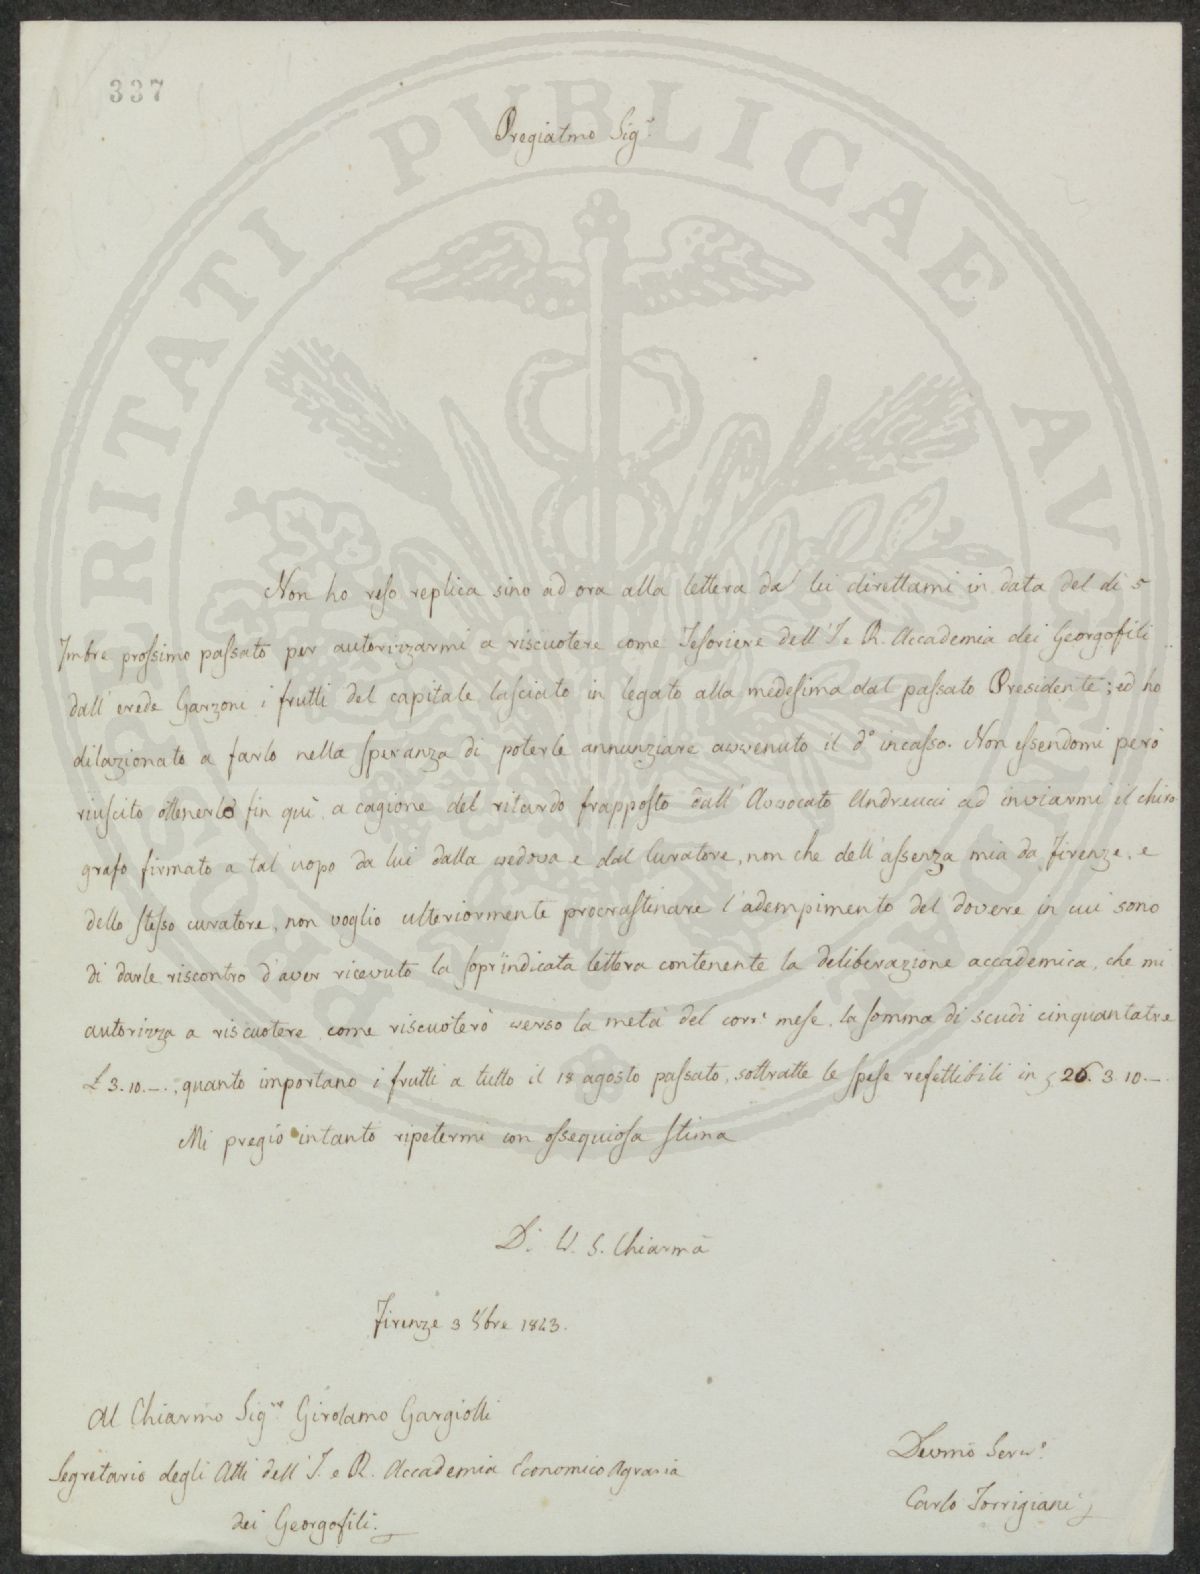 337
PROSPERITATI PVBLICAE AVGENDAE
Pregiatmo Sigr.
Non ho reso replica sino ad ora alla lettera da lei direttami in data del dì 5
7mbre prossimo passato per autorizzarmi a riscuotere come Tesoriere dell'I. e R. Accademia dei Georgofili
dall'erede Garzoni i frutti del capitale lasciato in legato alla medesima dal passato Presidente; ed ho
dilazionato a farlo nella speranza di poterle annunziare avvenuto il do incasso. Non essendomi però
riuscito ottenerlo fin quì a cagione del ritardo frapposto dall'Avvocato Andreucci ad inviarmi il chiro
grafo firmato a tal'uopo da lui dalla vedova e dal Curatore, non che dell'assenza mia da Firenze, e
dello stesso curatore, non voglio ulteriormente procrastinare l'adempimento del dovere in cui sono
di darle riscontro d'aver ricevuto la soprindicata lettera contenente la deliberazione accademica, che mi
autorizza a riscuotere come riscuoterò verso la metà del corre mese, la somma di scudi cinquantatre
£ 3. 10. —. quanto importano i frutti a tutto il 18 agosto passato, sottratte le spese refettibili in 26. 3. 10. —.
Mi pregio intanto ripetermi con ossequiosa stima
D. V. S. Chiarma
Firenze 3 Xbre 1843.
Al Chiarmo Sigre. Girolamo Gargiolli
Segretario degli Atti dell'I. e R. Accademia Economico Agraria
dei Georgofili.
Devmo Servo.
Carlo Torrigiani